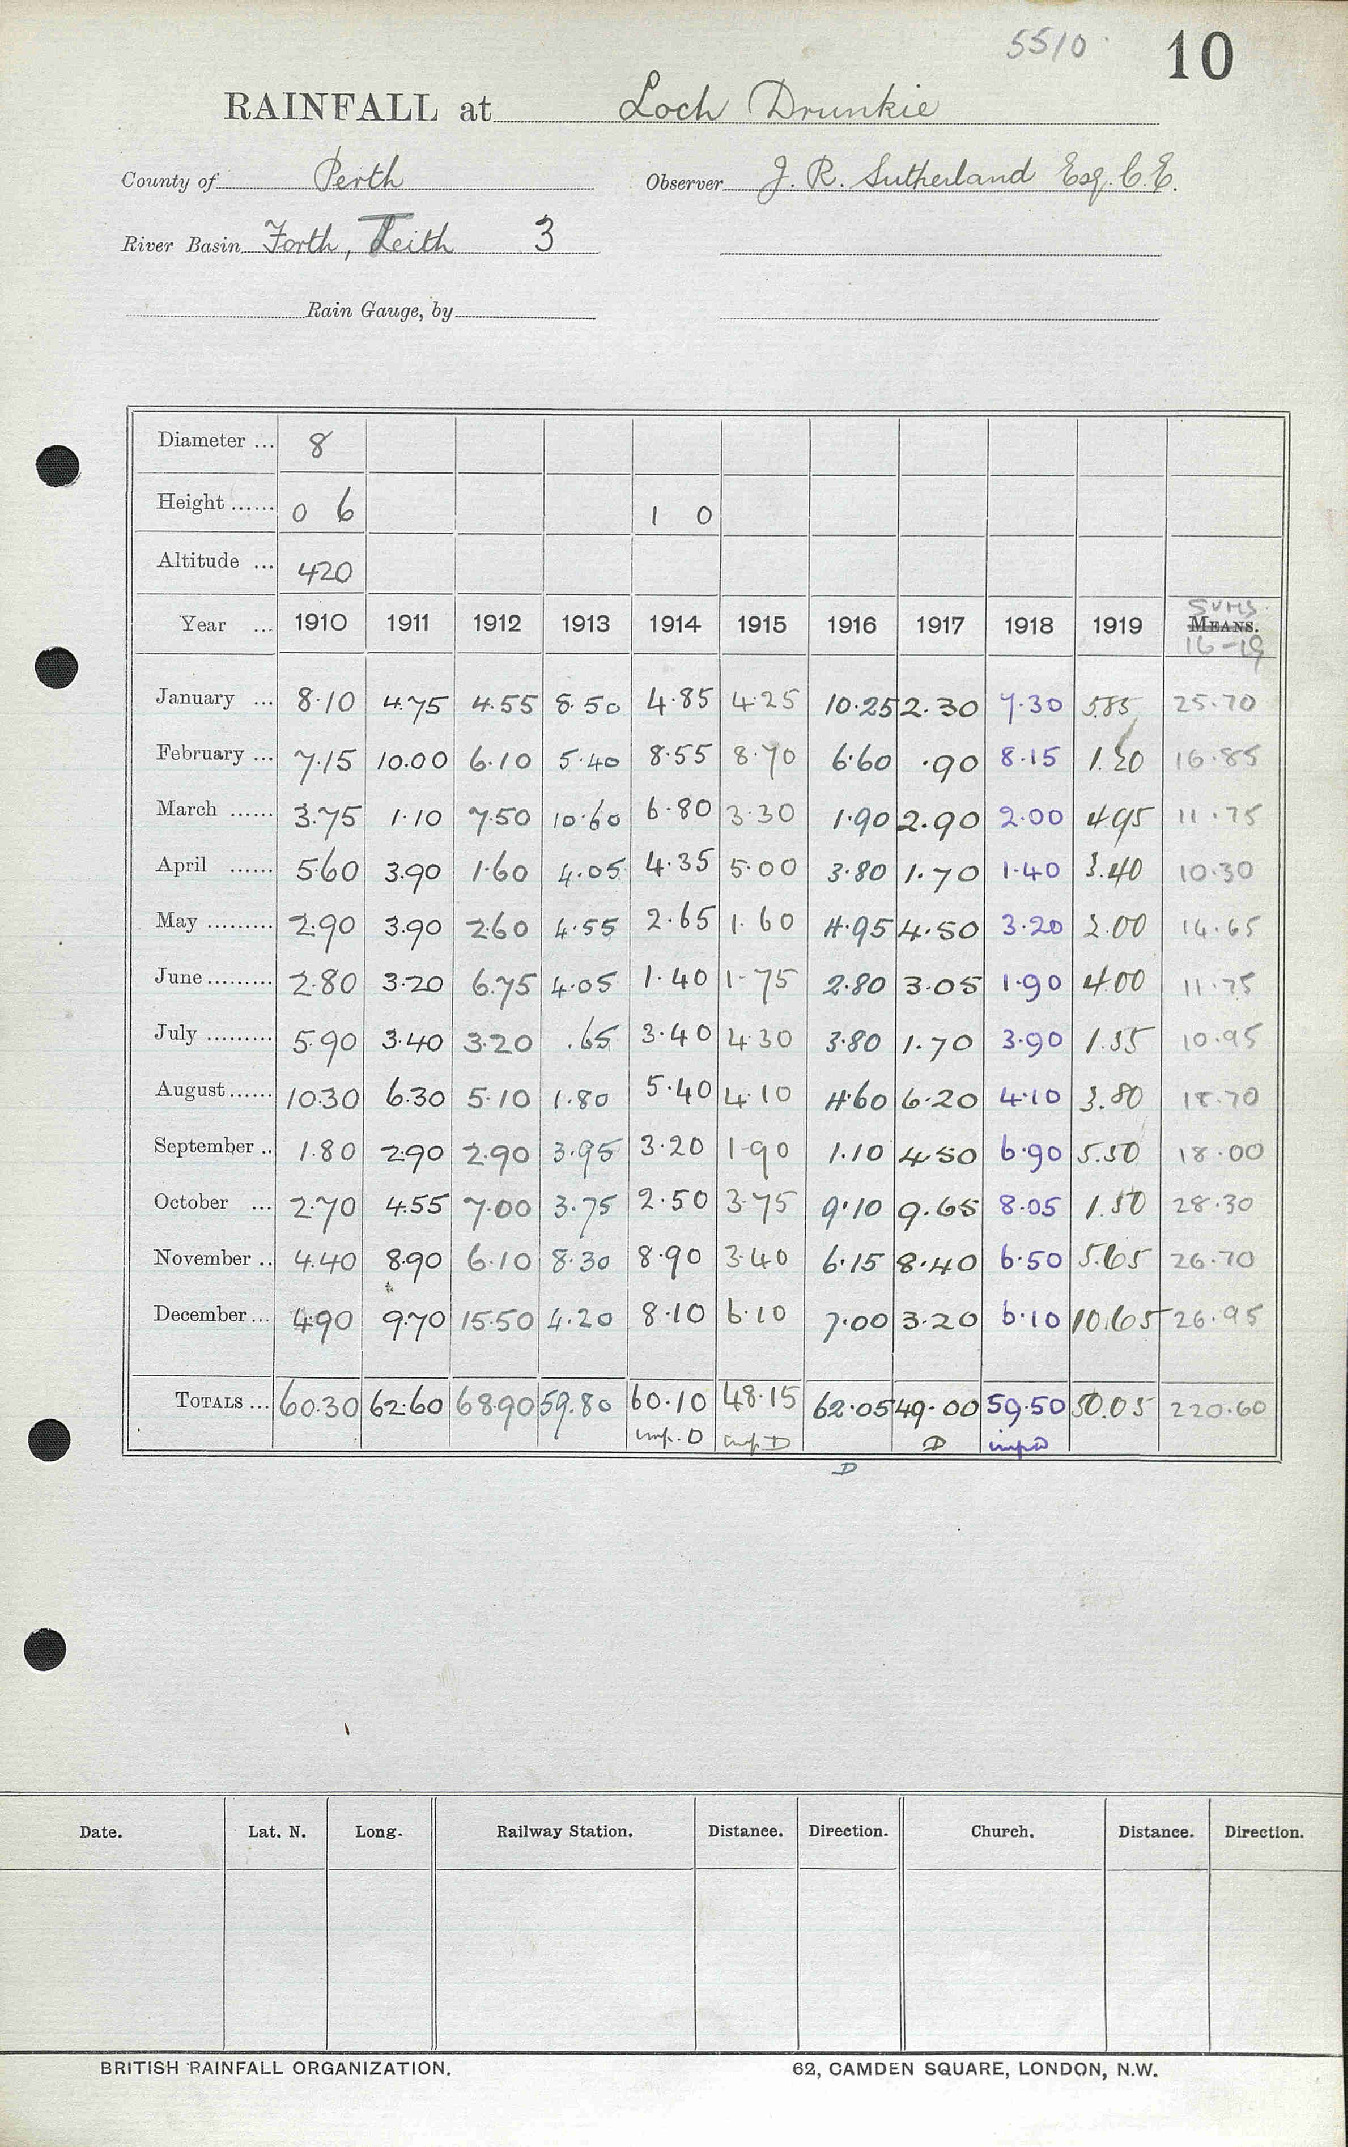 5510 10
RAINFALL at Loch Drunkie
County of Perth Observer J. R. Sutherland Esq. C.E.
River Basin Forth, Teith 3
Rain Gauge, by
Diameter ... 8
Height ...... 0 6 1 0
Altitude ... 420
Year ... 1910 1911 1912 1913 1914 1915 1916 1917 1918 1919 SUMS MEANS. 16-19
January ... 8.10 4.75 4.55 8.50 4.85 4.25 10.25 2.30 7.30 5.85 25.70
February ... 7.15 10.00 6.10 5.40 8.55 8.70 6.60 .90 8.15 1.20 16.85
March ...... 3.75 1.10 7.50 10.60 6.80 3.30 1.90 2.90 2.00 4.95 11.75
April ...... 5.60 3.90 1.60 4.05 4.35 5.00 3.80 1.70 1.40 3.40 10.30
May ......... 2.90 3.90 2.60 4.55 2.65 1.60 4.95 4.50 3.20 2.00 14.65
June ......... 2.80 3.20 6.75 4.05 1.40 1.75 2.80 3.05 1.90 4.00 11.75
July ......... 5.90 3.40 3.20 .65 3.40 4.30 3.80 1.70 3.90 1.55 10.95
August ...... 10.30 6.30 5.10 1.80 5.40 4.10 4.60 6.20 4.10 3.80 18.70
September .. 1.80 2.90 2.90 3.95 3.20 1.90 1.10 4.50 6.90 5.50 18.00
October ... 2.70 4.55 7.00 3.75 2.50 3.75 9.10 9.65 8.05 1.50 28.30
November .. 4.40 8.90 6.10 8.30 8.90 3.40 6.15 8.40 6.50 5.65 26.70
December ... 4.90 9.70 15.50 4.20 8.10 6.10 7.00 3.20 6.10 10.65 26.95
TOTALS ... 60.30 62.60 68.90 59.80 60.10 48.15 62.05 49.00 59.50 50.05 220.60
imp. D imp. D D imp D
D
Date. Lat. N. Long. Railway Station. Distance. Direction. Church. Distance. Direction.
BRITISH RAINFALL ORGANIZATION. 62, CAMDEN SQUARE, LONDON, N.W.